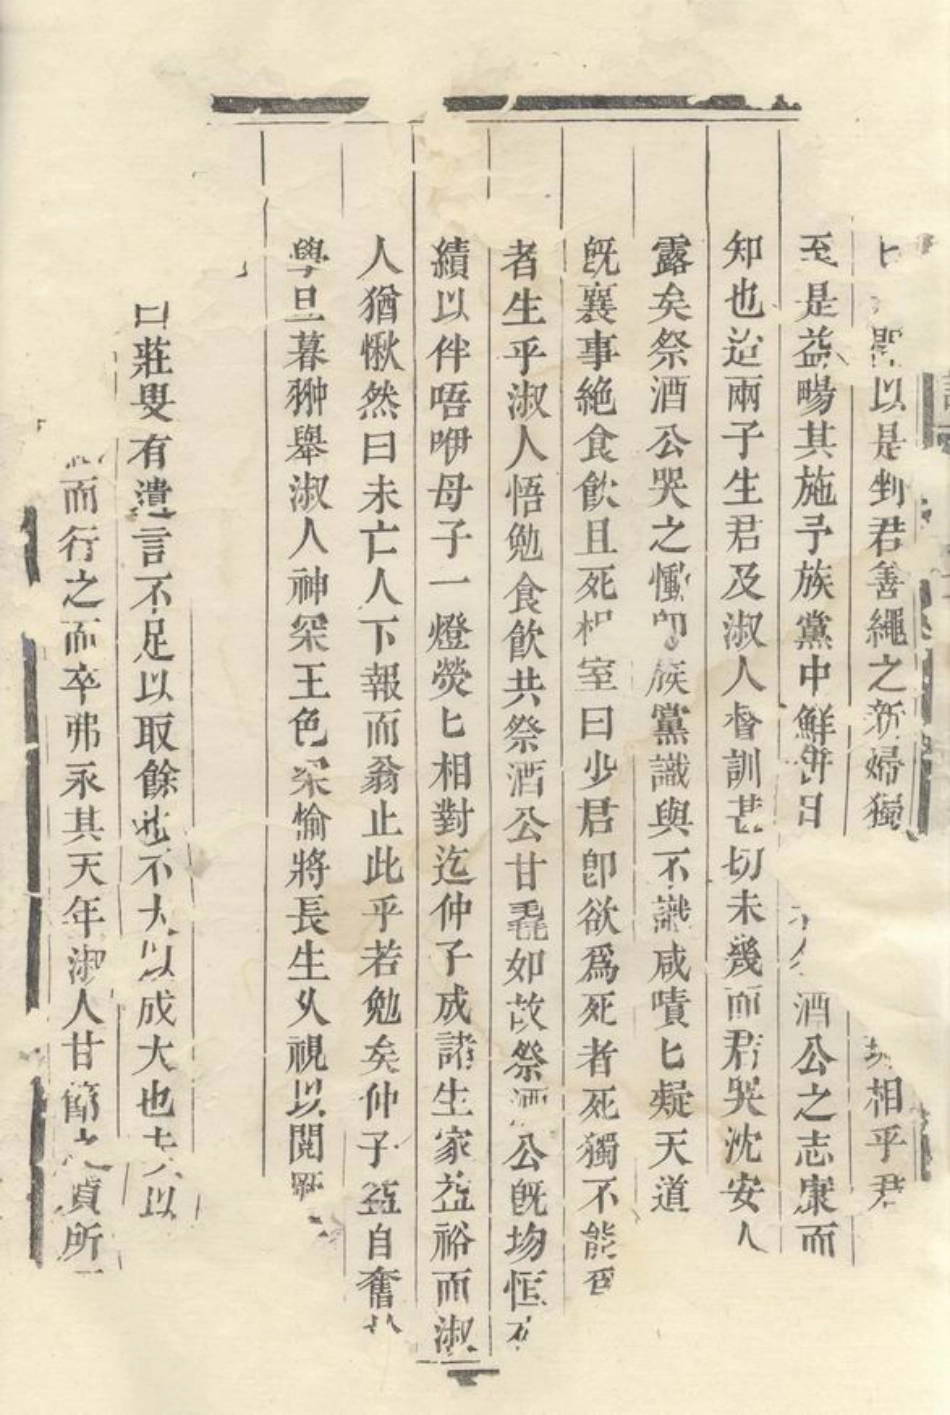 以是剉君善繩之新婦獨相乎君
至是益暢其施予族黨中鮮日酒公之志康而
知也迨兩子生君及淑人督訓甚切未幾而君哭沈安人
露矣祭酒公哭之慟卽族黨識與不識咸嘖匕疑天道
旣襄事絶食飮且死相室曰少君卽欲爲死者死獨不能爲
者生乎淑人悟勉食飮共祭酒公甘毳如故祭酒公旣場恒
績以伴唔咿母子一燈熒匕相對迄仲子成諸生家益裕而淑
人猶愀然曰未亡人下報而翁止此乎若勉矣仲子益自奮
學旦暮翀舉淑人神采王色采愉將長生久視以閱
曰莊叟有遺言不足以取餘也不大以成大也夫以
而行之而卒弗永其天年淑人甘節之貞所